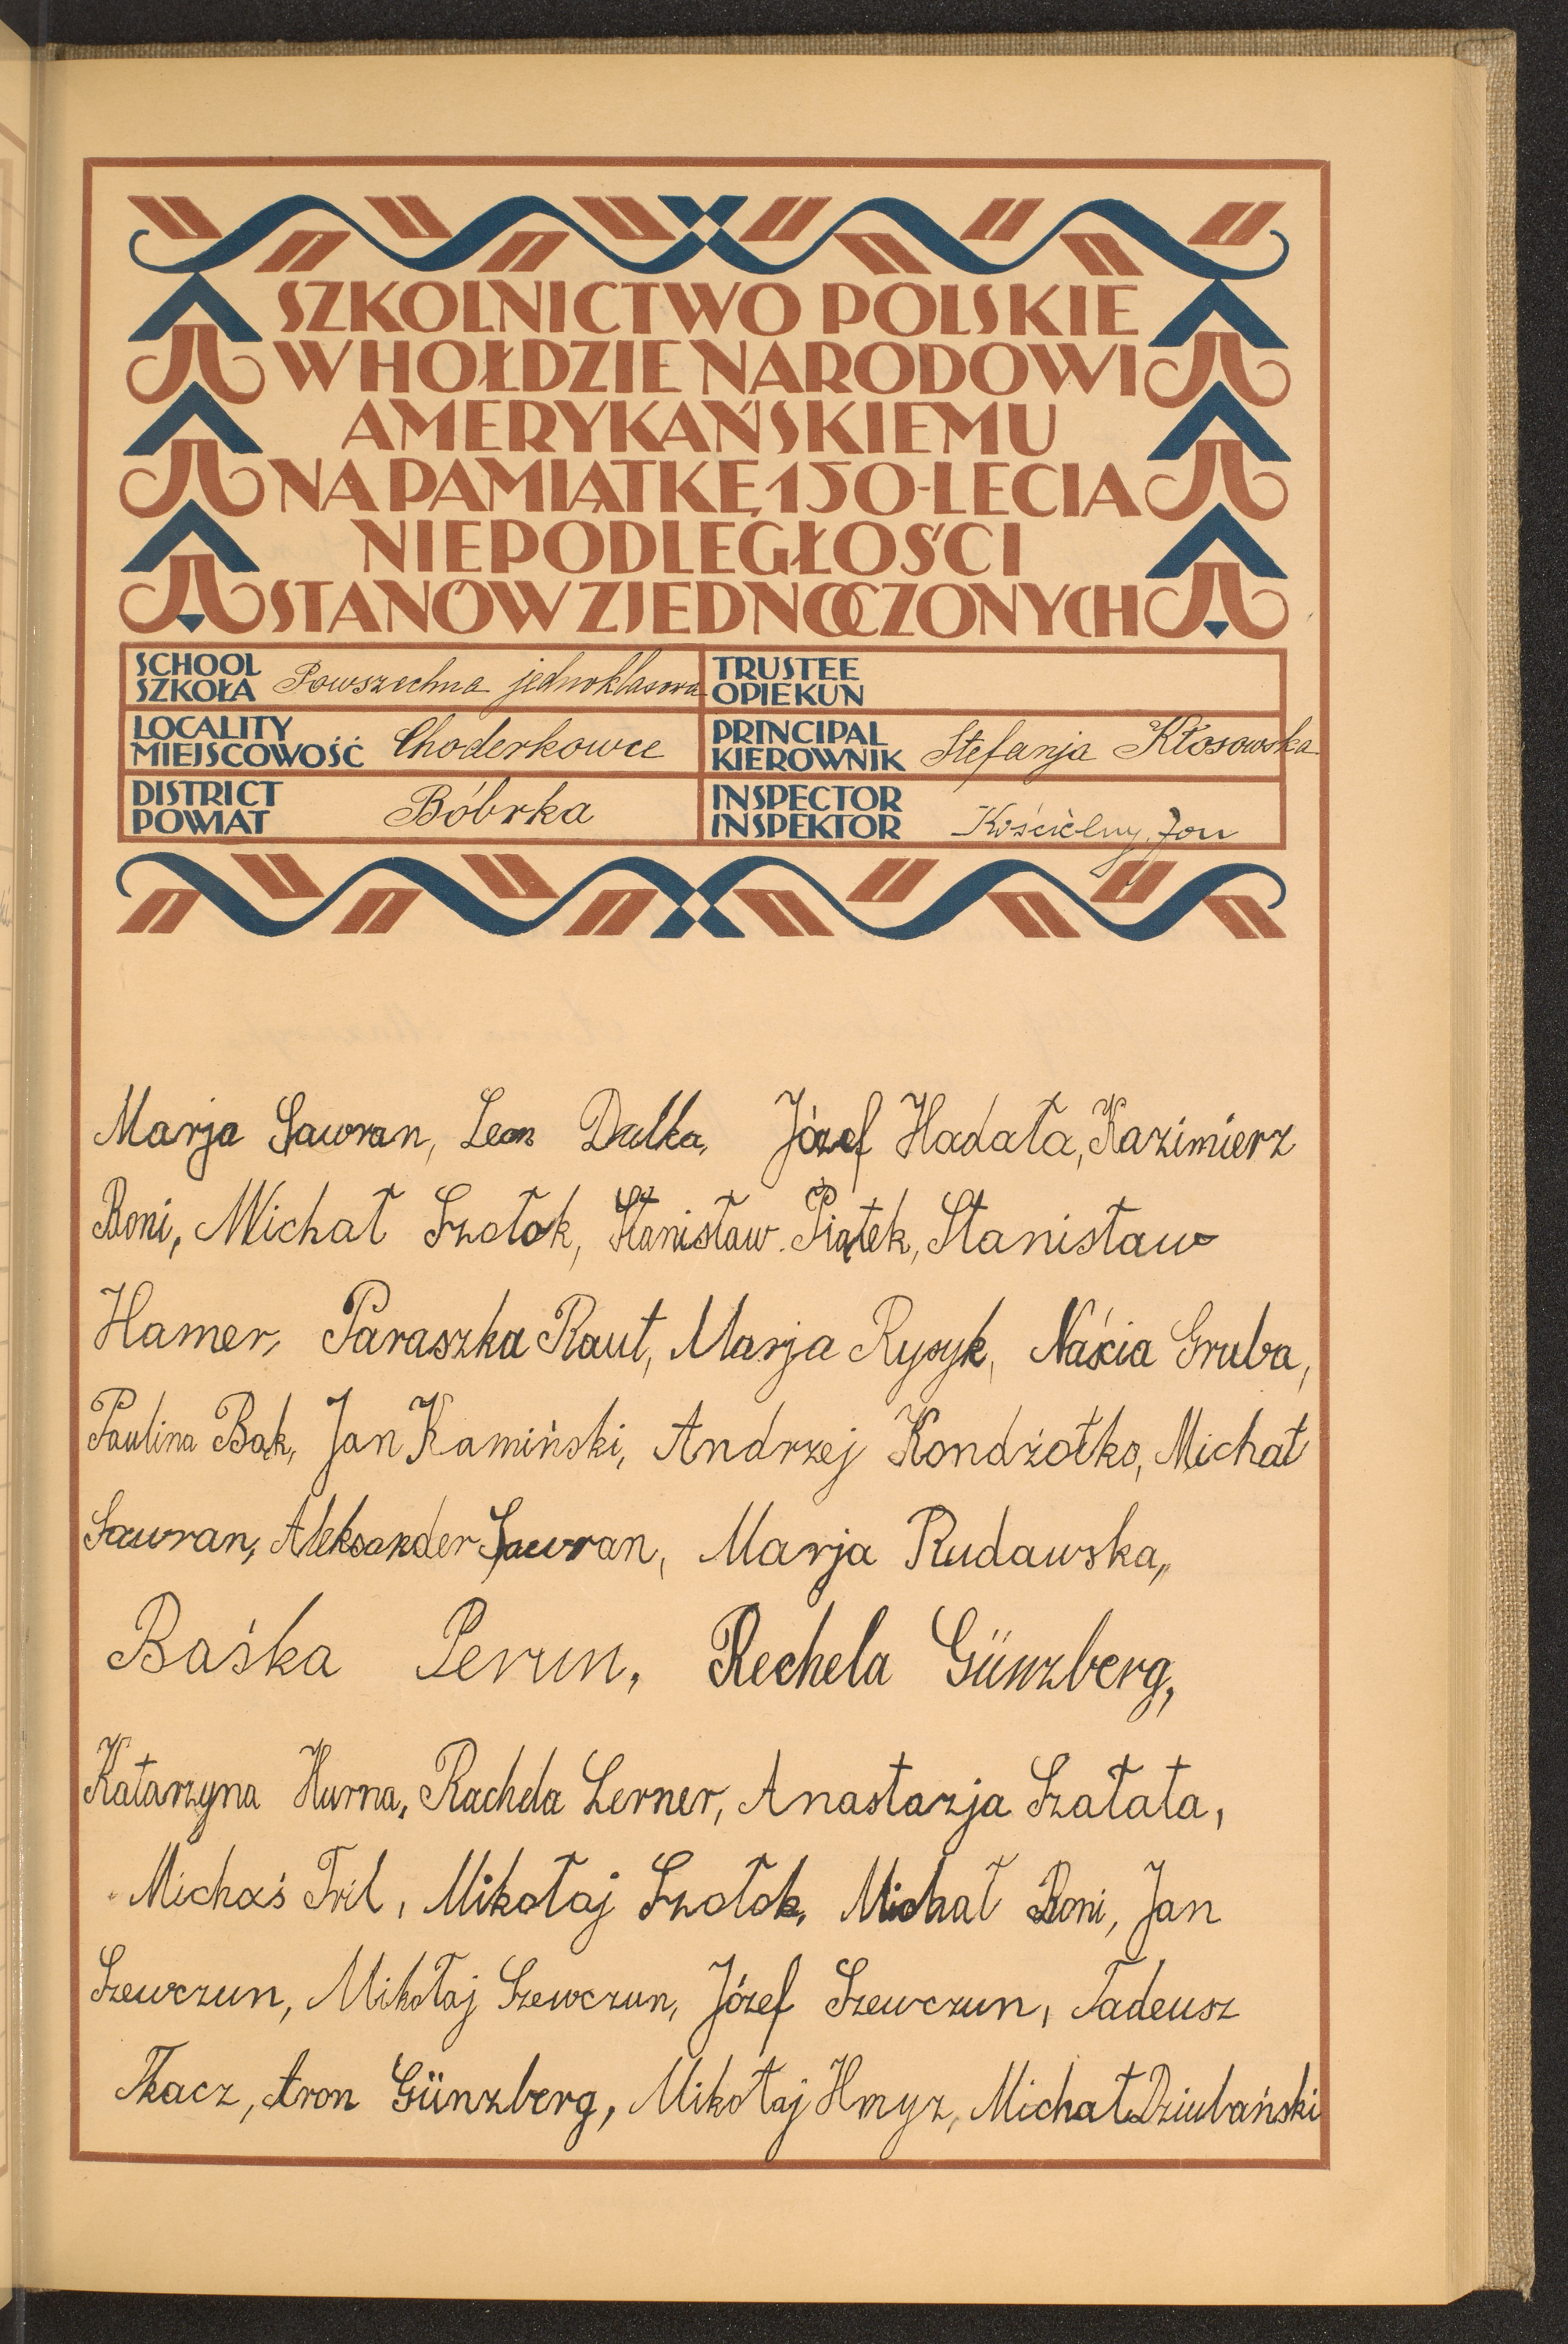 SZKOLNICTWO POLSKIE
W HOŁDZIE NARODOWI
AMERYKAŃSKIEMU
NA PAMIĄTKĘ 150-LECIA
NIEPODLEGŁOŚCI
STANÓW ZJEDNOCZONYCH
SCHOOL
SZKOŁA Powszechna jednoklasowa
TRUSTEE
OPIEKUN
LOCALITY
MIEJSCOWOŚĆ Choderkowce
PRINCIPAL
KIEROWNIK Stefanja Kłosowska
DISTRICT
POWIAT Bóbrka
INSPECTOR
INSPEKTOR Kościelny Jan
Marja Sawran, Leon Dulka, Józef Hadała, Kazimierz
Roni, Michał Szołok, Stanisław Piątek, Stanisław
Hamer, Paraszka Raut, Marja Rysyk, Naścia Gruba,
Paulina Bąk, Jan Kamiński, Andrzej Kondżołko, Michał
Sawran, Aleksander Sawran, Marja Rudawska,
Baśka Perun, Rechela Günzberg,
Katarzyna Hurna, Rachela Lerner, Anastazja Szałata,
Michaś Tril, Mikołaj Szołok, Michał Roni, Jan
Szewczun, Mikołaj Szewczun, Józef Szewczun, Tadeusz
Tkacz, Aron Günzberg, Mikołaj Hmyz, Michał Dziubański